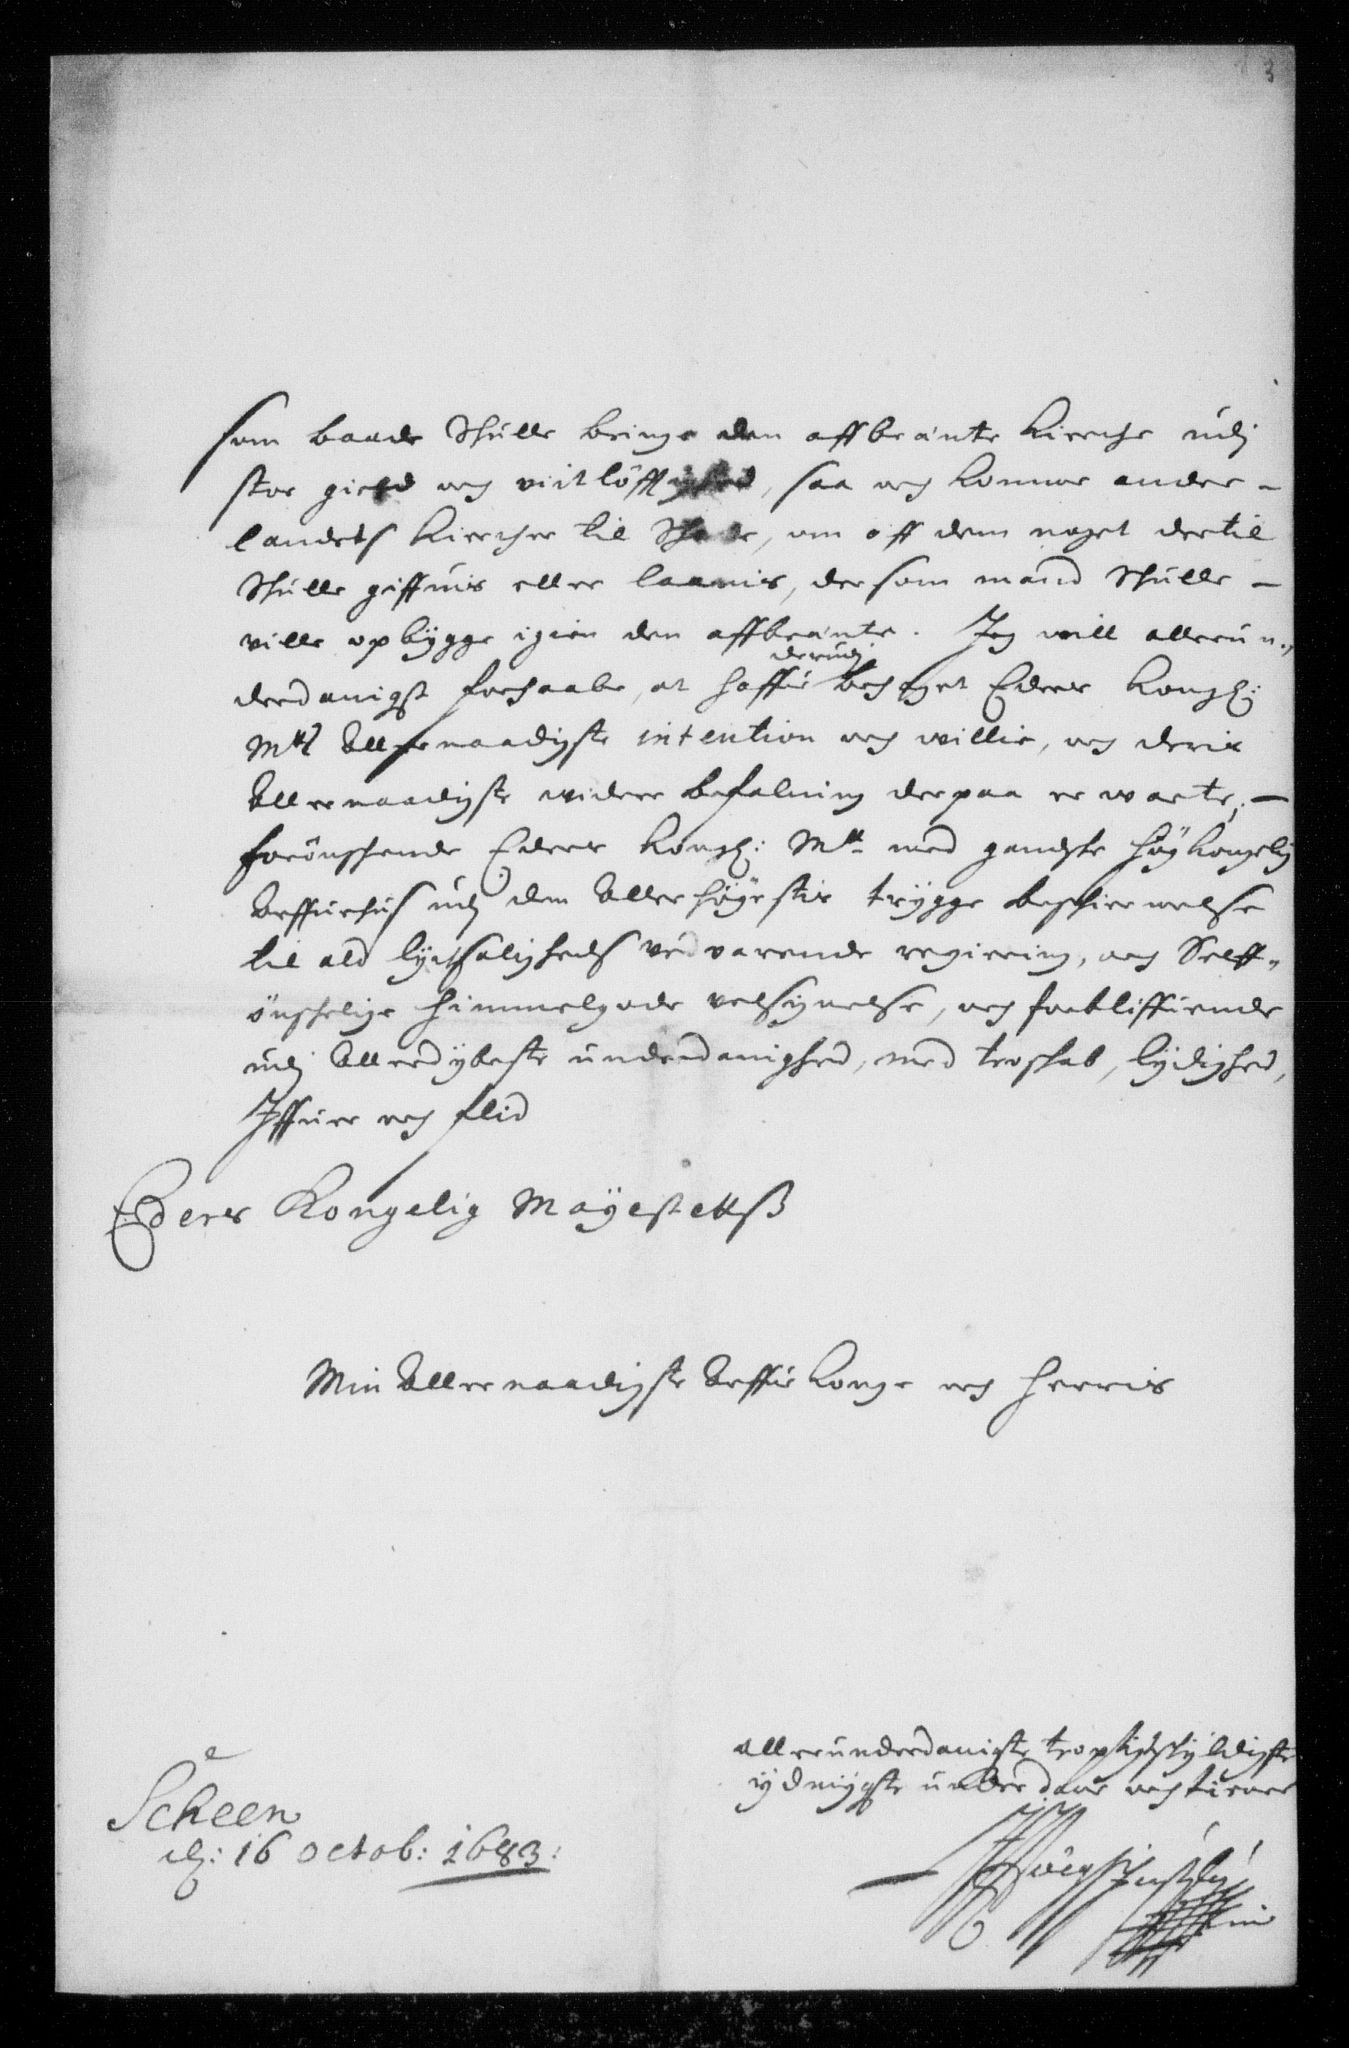 3
som baade Skulle bringe den affbrante Kierche udj
stor gield och vitløfftighed, saa och komme andre -
landets Kiercher til Skade, om aff dem noget dertil
Skulle giffuis eller laanis, dersom mand Skulle -
ville opbygge igien den affbrante. Jeg will allerun„
derdanigst forhaabe, at haffue derudj Eders Kongl:
Mttz Allernaadigste intention och willie, och deris
Allernaadigste widere befalning derpaa erwarte, -
forønschende Eders Kongl: Mtt med gandske høy Kongelig
Arffuehus udj den Allerhøyestis trygge beskiermelse
til ald lycksaligheds vedvarende regiering, och Selff„
ønschelige himmelgode velsignelse, och forbliffuende
udj Allerdybeste underdanighed, med troskab, lydighed,
Iffuer och flid
Eders Kongelig Mayestettß
Min Allernaadigste Arffue Konge och Herris
allerunderdanigste troplichtskyldigste
ydmygste underdane och tiener
Scheen
d: 16 Octob: 1683: